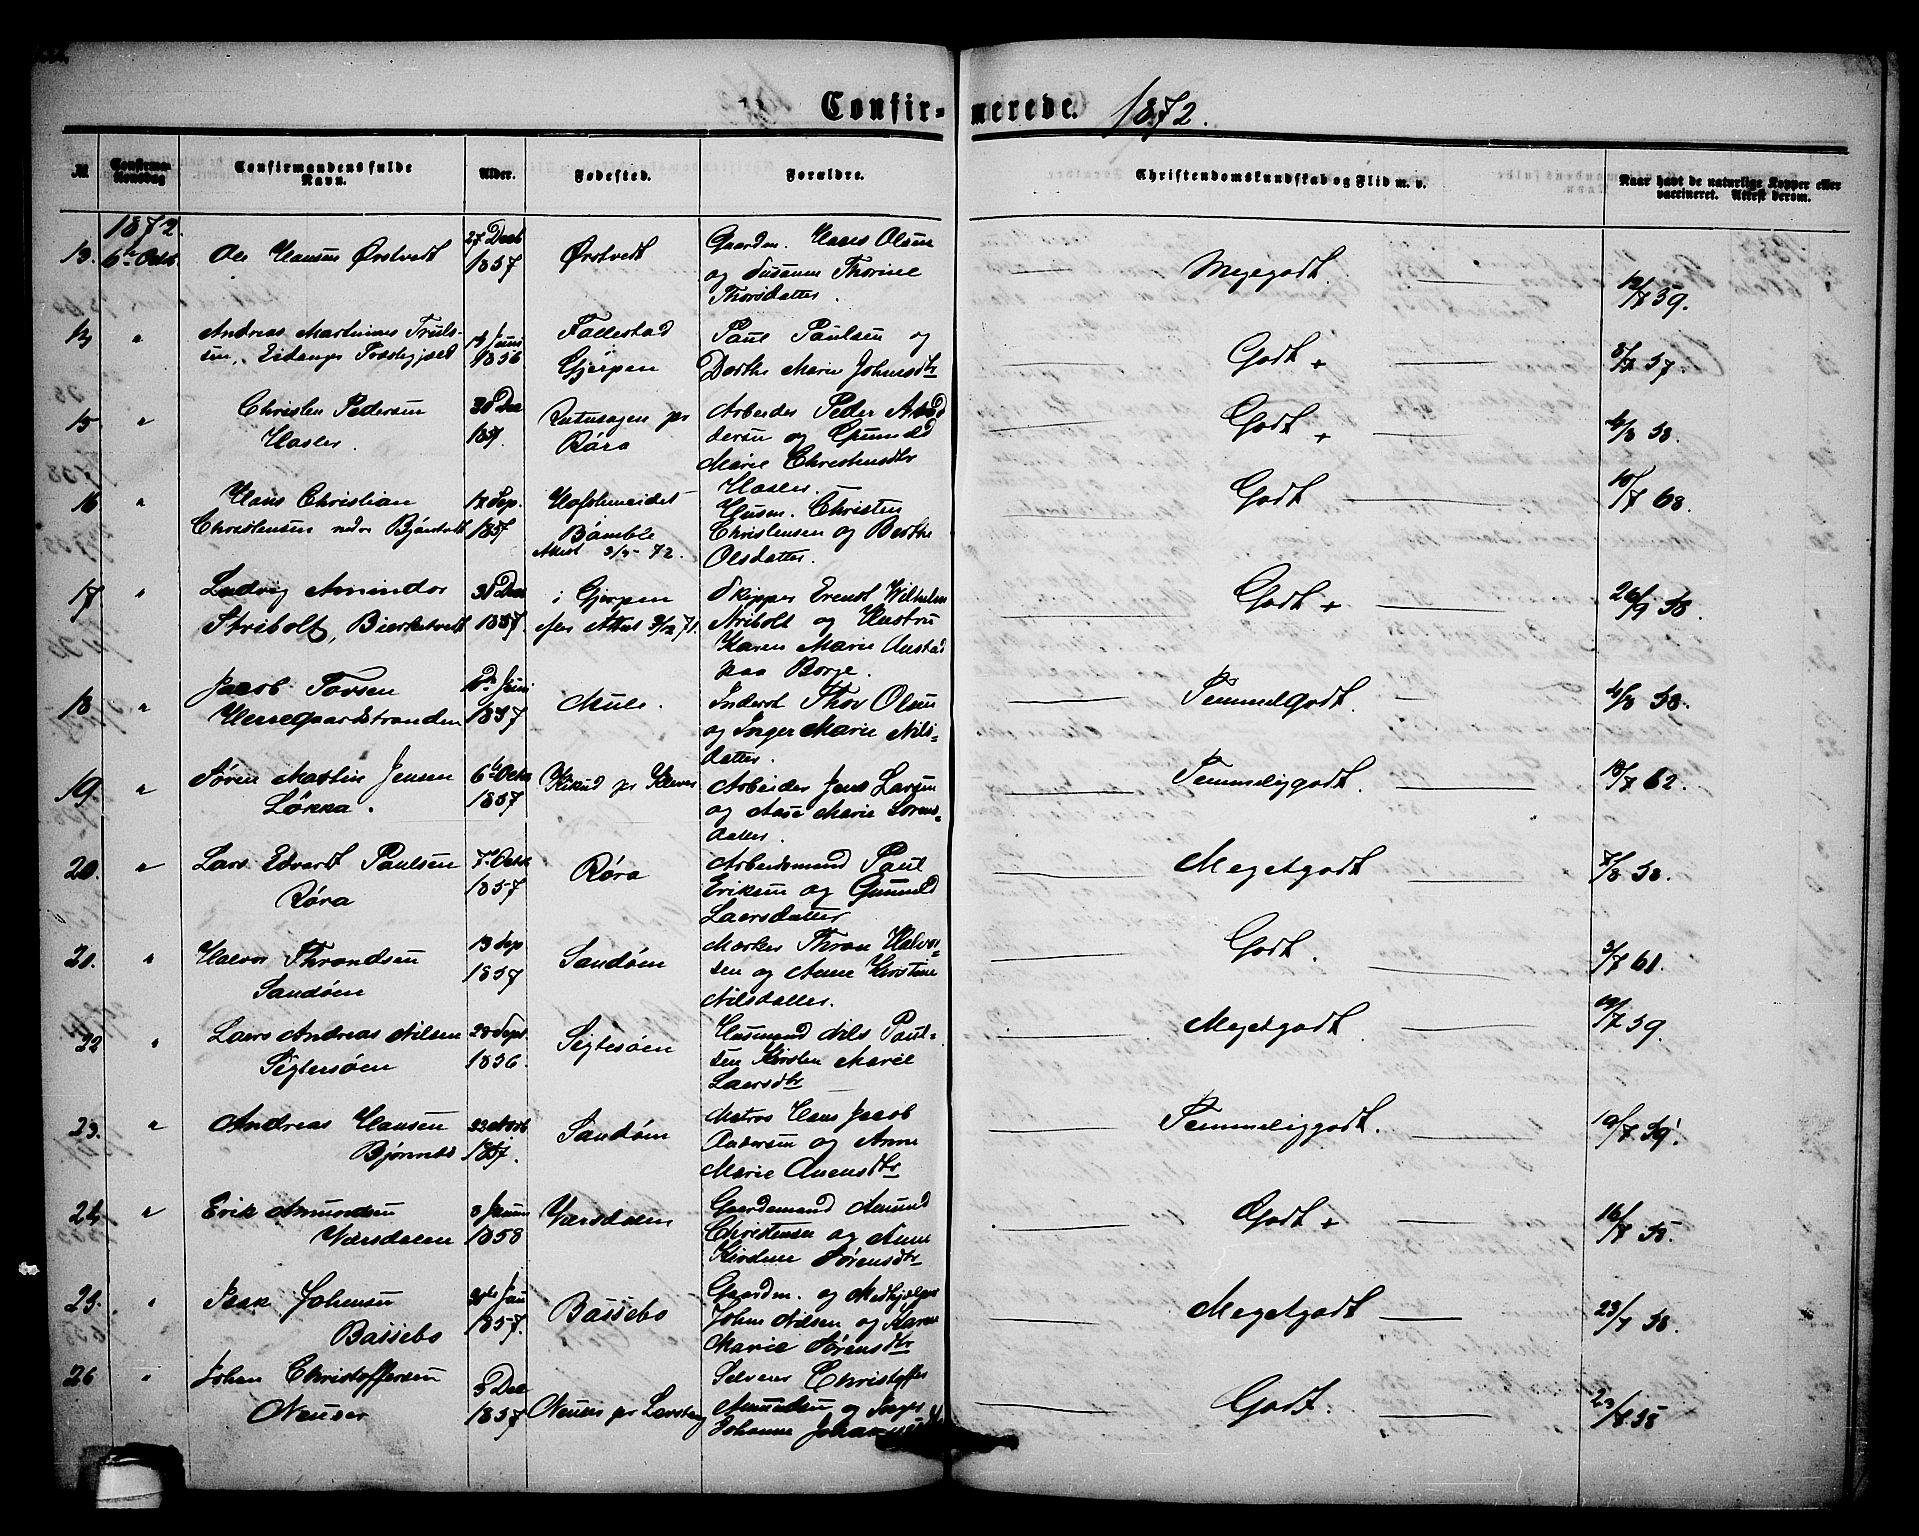 Confirmerede. 1872.
№ Confirmationsdag Confirmandens fulde Navn. Alder. Fødested. Forældre. Christendomskundskab og Flid m. v. Naar havt de naturlige Kopper eller vaccineret. Attest derom.
1872.
13. 6te Octb. Ole Hansen Ørstvedt 27 Decb 1857 Ørstvedt Gaardm. Hans Olsen
og Susanne Thorine
Thorsdatter. Megegodt. 12/8 59.
14 " Andreas Martinius Truls-
sen, Eidanger Præstegjæld 14 Juni 1856 Fallestad
Gjerpen Paul Paulsen og
Dorthe Marie Johnsdtr Godt + 57.
15 " Christen Pedersen
Hasler. 31 Dec 1857. Røra Arbeider Peder
og Gunnild
Marie Christensdtr
Hasler. Godt + 4/8 58.
16 " Hans Christian
Christensen nedre Bjøntvedt 12 Sep. 1857 Hofsmeidet
Bamble
Attest 3/5 72. Husm. Christen
Christensen og Berthe
Olsdatter. Godt 10/7 68.
17 " Ludvig Amindor
Stribolt, Bierketvedt 31 Dec 1857. i Gjerpen
Attest 3/12 71. Skipper Ernst Wilhelm
Stribolt og Hustru
Karen Marie
paa Borge. Godt + 26/9 58.
18 " Jacob Torsen
Herregaardstranden Juni 1857 Mule. Inderst Thor Olsen
og Inger Marie Nils-
datter. Temmelgodt. 4/8 58.
19. " Søren Martin Jensen
Løkka. 6te Octb 1857 pr Kleven Arbeider Jens Larsen
og Aase Marie Sørens-
datter. Temmeliggodt. 18/7 62.
20. " Lars Edvardt Paulsen
Røra 7de Octb 1857 Røra Arbeidsmand Paul
Eriksen og Gunnild
Laersdatter Megetgodt 7/8 58.
21. " Halvor Throndsen
Sandøen 13 Sep 1857 Sandøen Matros Thron Halvor-
sen og Anne Kirstine
Nilsdatter. Godt. 3/7 61.
22 " Laers Andreas Nilsen
Sigtersøen 28 Sept. 1856. Sigtesøen Husmand Nils Paul-
sen Kirsten Marie
Laersdtr Megetgodt. 19/7 59.
23. " Andreas Hansen
Bjønnes 23 Novb 1857. Sandøen Matros Hans Jacob
Andersen og Anne
Marie Anensdtr Temmeliggodt. 19/7 59.
24 " Erik Amundsen
Versdalen 3 Januar 1858 Versdalen Gaardemand Amund
Christensen og Anne
Kirstine Sørensdtr Godt + 16/8 58.
25. " Isak Johnsen
Bassebo Jan 1857. Bassebo Gaardm. og Medhjelper
John Nilsen og Karen
Marie Sørensdtr Megetgodt 23/7 58.
26 " Johan Christoffersen
Nenset 3 Dec 1857 Nenset pr Selveier Christoffer
Amundsen og Inger
Johanne Godt. 58